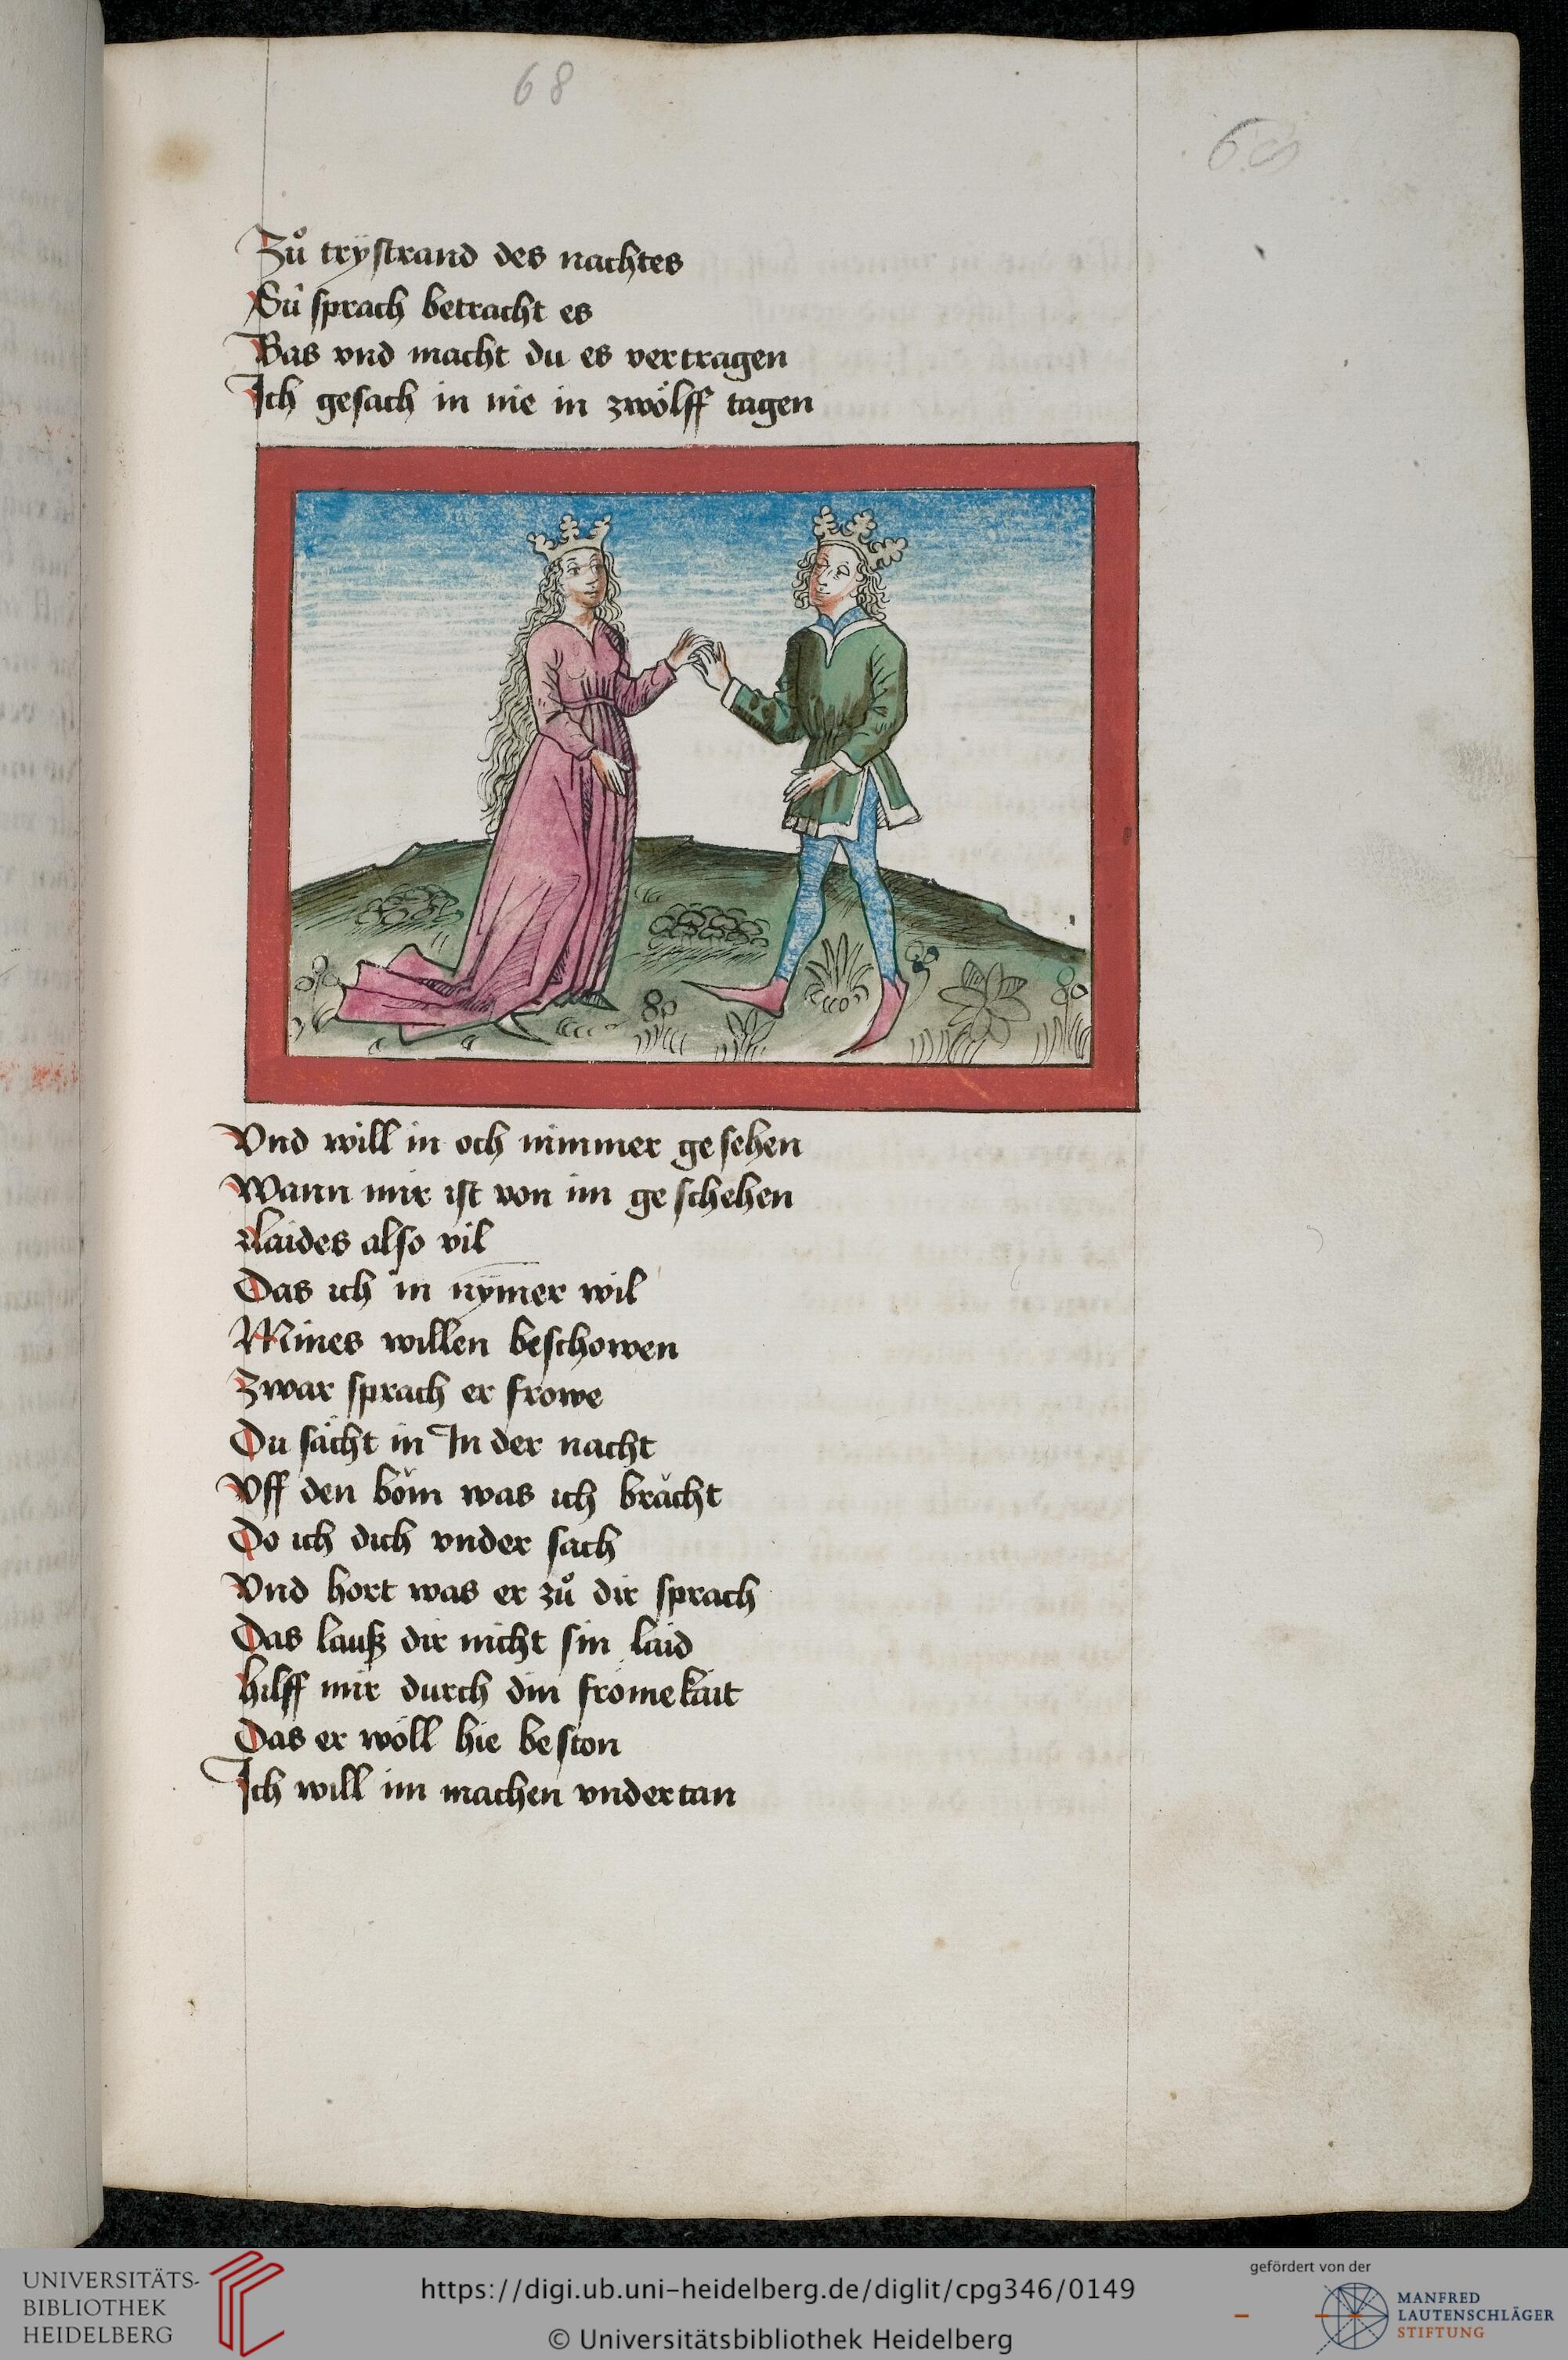 68
68
Zů trÿstrand des nachtes
Sú sprach betracht es
Bas vnd macht du es vertragen
Ich gesach in nie in zwölff tagen
Vnd will in och nimmer gesehen
Wann mir ist von im geschehen
Laides also vil
Das ich in nÿmer wil
Mines willen beschowen
Zwar sprach er frowe
Du sächt in In der nacht
Vff den böm was ich brächt
Do ich dich vnder sach
Vnd hort was er zů dir sprach
Das lauß dir nicht sin laid
hilff mir durch din fromekait
Das er wöll hie beston
Ich will im machen vndertan
UNIVERSITÄTS-
BIBLIOTHEK
HEIDELBERG
https://digi.ub.uni-heidelberg.de/diglit/cpg346/0149
© Universitätsbibliothek Heidelberg
gefördert von der
MANFRED
LAUTENSCHLÄGER
STIFTUNG